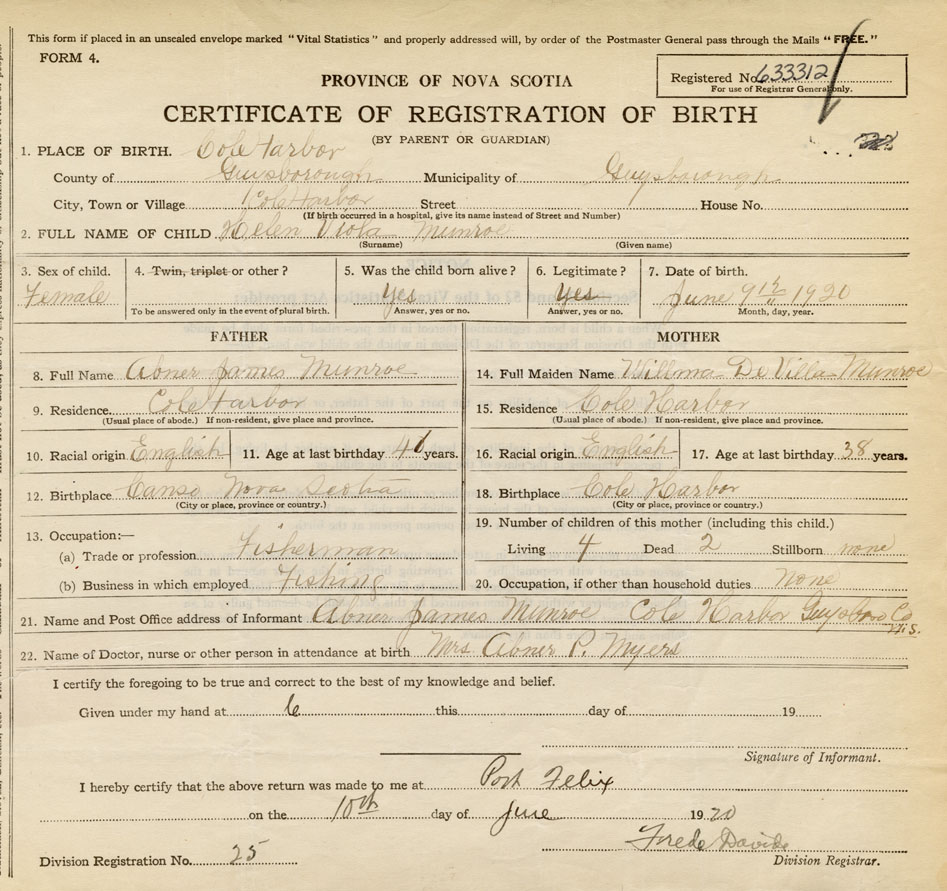 This form if placed in an unsealed envelope marked "Vital Statistics" and properly addressed will, by order of the Postmaster General pass through the Mails "FREE."
FORM 4.
Registered No. 633312
For use of Registrar General only.
PROVINCE OF NOVA SCOTIA
CERTIFICATE OF REGISTRATION OF BIRTH
(BY PARENT OR GUARDIAN)
1. PLACE OF BIRTH. Cole Harbor
County of Guysborough Municipality of Guysborough
City, Town or Village Cole Harbor Street House No.
(If birth occurred in a hospital, give its name instead of Street and Number)
2. FULL NAME OF CHILD Helen Viola Munroe
(Surname) (Given name)
3. Sex of child. 4. Twin, triplet or other? 5. Was the child born alive? 6. Legitimate? 7. Date of birth.
Female Yes Yes June 9th 1920
To be answered only in the event of plural birth. Answer, yes or no. Answer, yes or no. Month, day, year.
FATHER MOTHER
8. Full Name Abner James Munroe 14. Full Maiden Name Willma De Villa Munroe
9. Residence. Cole Harbor 15. Residence Cole Harbor
(Usual place of abode.) If non-resident, give place and province. (Usual place of abode.) If non-resident, give place and province.
10. Racial origin English 11. Age at last birthday 41 years. 16. Racial origin English 17. Age at last birthday 38 years.
12. Birthplace Canso Nova Scotia 18. Birthplace Cole Harbor
(City or place, province or country.) (City or place, province or country.)
13. Occupation:— 19. Number of children of this mother (including this child.)
(a) Trade or profession Fisherman Living 4 Dead 2 Stillborn none
(b) Business in which employed Fishing 20. Occupation, if other than household duties None
21. Name and Post Office address of Informant Abner James Munroe Cole Harbor Guysboro Co
N.S.
22. Name of Doctor, nurse or other person in attendance at birth Mrs Abner P. Myers
I certify the foregoing to be true and correct to the best of my knowledge and belief.
Given under my hand at 6 this day of 19
Signature of Informant.
I hereby certify that the above return was made to me at Port Felix
on the 10th day of June 1920
Division Registration No. 25
Division Registrar.